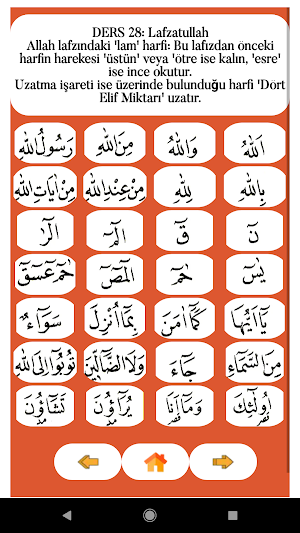 DERS 28: Lafzatullah
Allah lafzındaki 'lam' harfi: Bu lafızdan önceki
harfin harekesi 'üstün' veya 'ötre ise kalın, 'esre'
ise ince okutur.
Uzatma işareti ise üzerinde bulunduğu harfi 'Dört
Elif Miktarı' uzatır.
اَللّٰهُ وَاللّٰهُ مِنَ اللّٰهِ رَسُولُ اللّٰهِ
بِاللّٰهِ لِلّٰهِ مِنْ عِنْدِ اللّٰهِ مِنْ اٰيَاتِ اللّٰهِ
نٓ قٓ الٓمٓ الٓرٰ
يٰسٓ حٰمٓ الٓمٓصٓ حٰمٓ عٓسٓقٓ
يَٓا اَيُّهَا كَمَٓا اٰمَنَ بِمَٓا اُنْزِلَ سَوَٓاءٌ
مِنَ السَّمَٓاءِ جَٓاءَ وَلَا الضَّٓالّٖينَ تُوبُٓوا اِلَى اللّٰهِ
اُولٰٓئِكَ وَمَٓا اَنَا يُرَٓاؤُنَ تَشَٓاؤُنَ